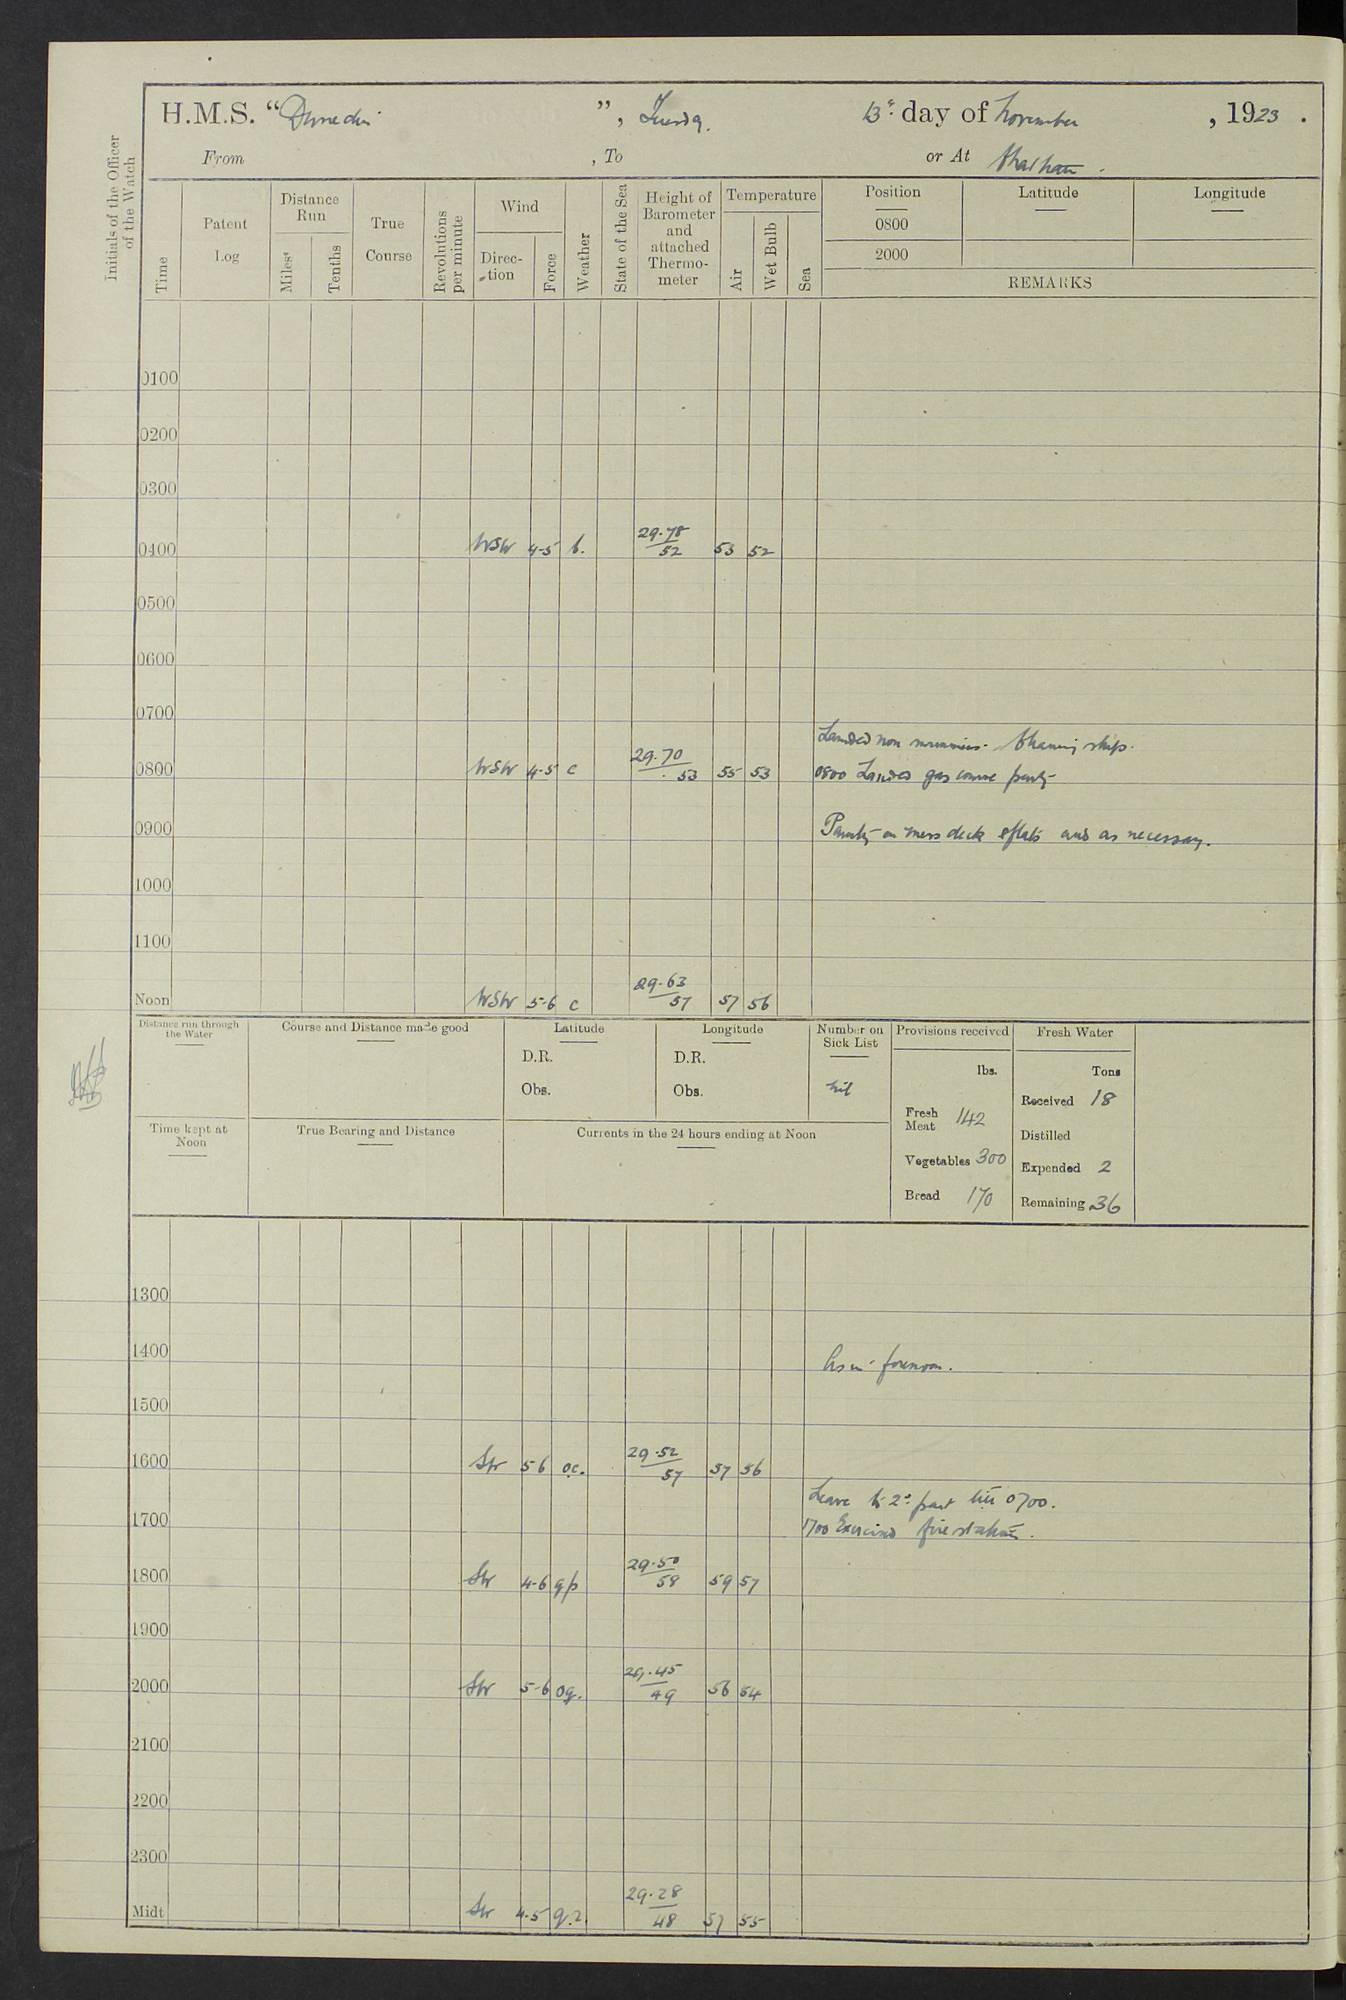 H.M.S. "Dunedin", Tuesday 13th day of November, 1923.
From , To or At Chatham.
Initials of the Officer of the Watch
Time
Patent Log
Distance Run
Miles
Tenths
True Course
Revolutions per minute
Wind
Direction
Force
Weather
State of the Sea
Height of Barometer and attached Thermometer
Temperature
Air
Wet Bulb
Sea
Position Latitude Longitude
0800
2000
REMARKS
0100
0200
0300
0400 WSW 4-5 b. 29.78 52 53 52
0500
0600
0700
Landed non swimmers. Cleaning ship.
0800 WSW 4-5 c 29.70 53 55 53 0800 Landed gas course party
0900 on mess deck flats and as necessary.
1000
1100
Noon WSW 5-6 c 29.63 57 57 56
Distance run through the Water
Course and Distance made good
Latitude
D.R.
Obs.
Longitude
D.R.
Obs.
Number on Sick List
nil
Provisions received
lbs.
Fresh Meat 142
Vegetables 300
Bread 170
Fresh Water
Tons
Received 18
Distilled
Expended 2
Remaining 36
Time kept at Noon
True Bearing and Distance
Currents in the 24 hours ending at Noon
1300
1400 As in forenoon.
1500
1600 SW 5-6 oc. 29.52 57 57 56
Leave to 2nd part till 0700.
1700 1700 Exercised fire stations.
1800 SW 4-6 qp 29.50 58 59 57
1900
2000 SW 5-6 oq. 29.45 49 56 54
2100
2200
2300
Midt SW 4-5 q.r. 29.28 48 57 55